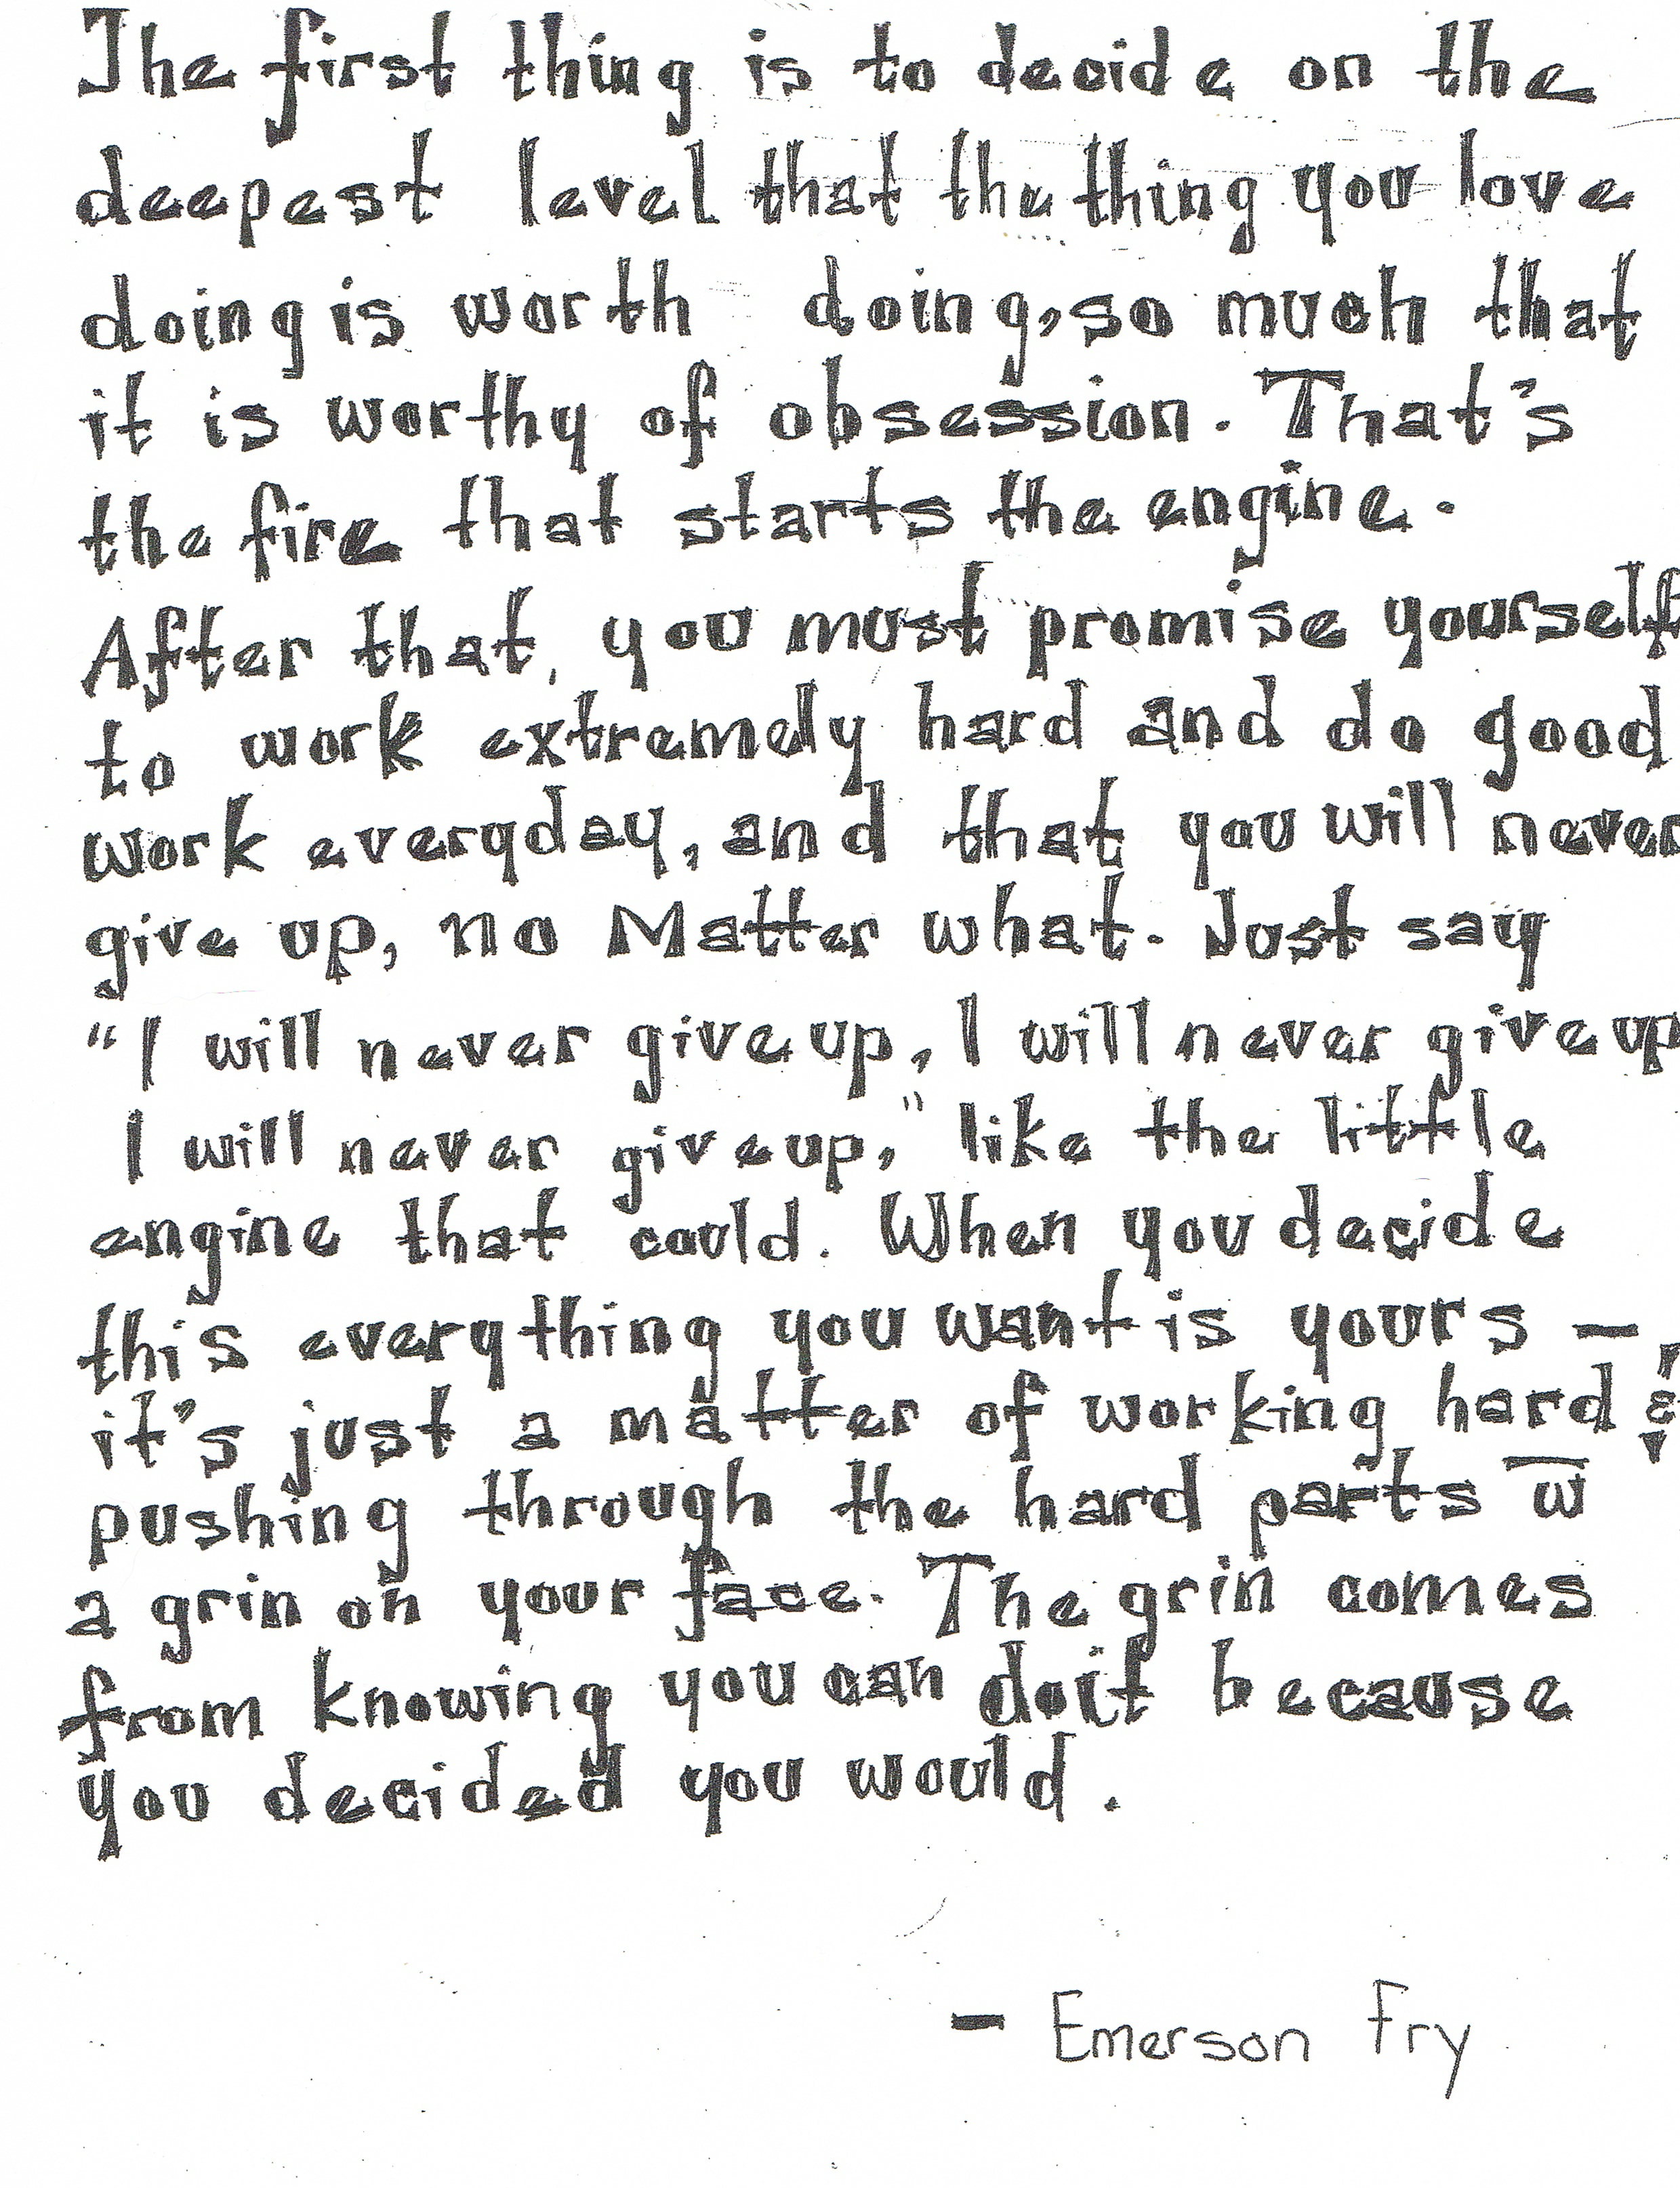 The first thing is to decide on the
deepest level that the thing you love
doing is worth doing, so much that
it is worthy of obsession. That's
the fire that starts the engine.
After that, you must promise yourself
to work extremely hard and do good
work everyday, and that you will never
give up, no Matter what. Just say
"I will never give up, I will never give up
I will never give up," like the little
engine that could. When you decide
this everything you want is yours —
it's just a matter of working hard &
pushing through the hard parts w̅
a grin on your face. The grin comes
from knowing you can do it because
you decided you would.
- Emerson Fry